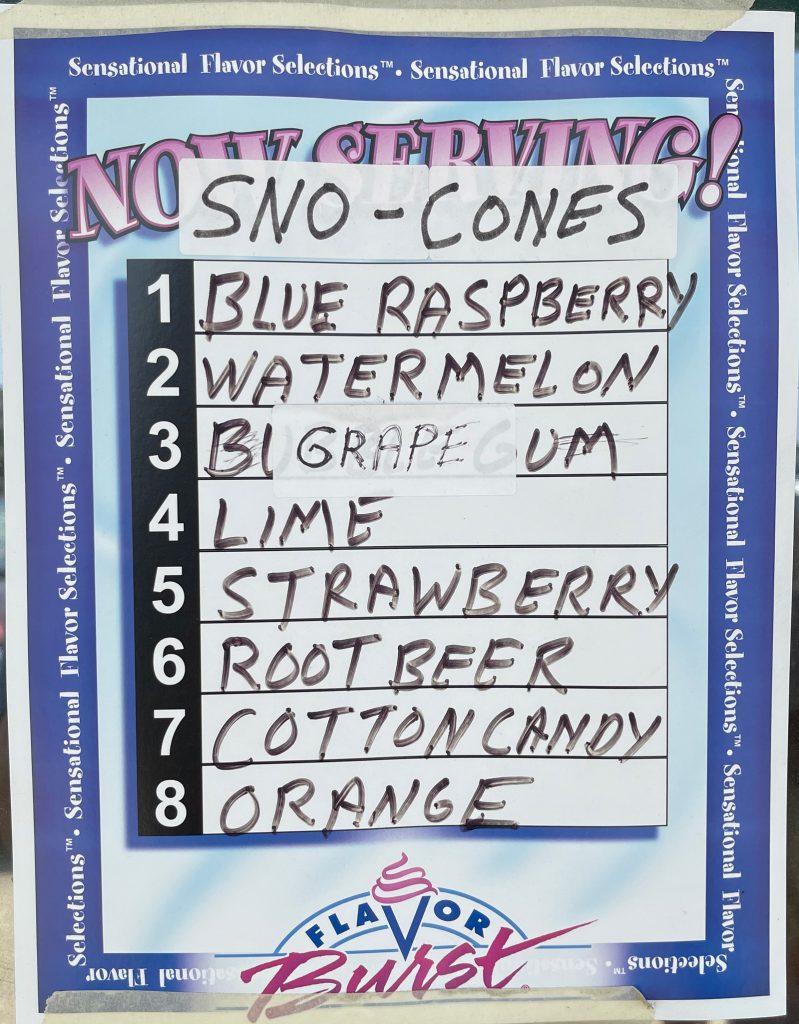 Sensational Flavor Selections™ • Sensational Flavor Selections™
NOW SERVING!
SNO-CONES
1 BLUE RASPBERRY
2 WATERMELON
3 BI GRAPE GUM
4 LIME
5 STRAWBERRY
6 ROOT BEER
7 COTTON CANDY
8 ORANGE
Selections™ • Sensational Flavor Selections™ • Sensational Flavor Selections™
Sensational Flavor Selections™ • Sensational Flavor Selections™ • Sensational Flavor
Selections™ • Sensational Flavor
FLAVOR
Burst®